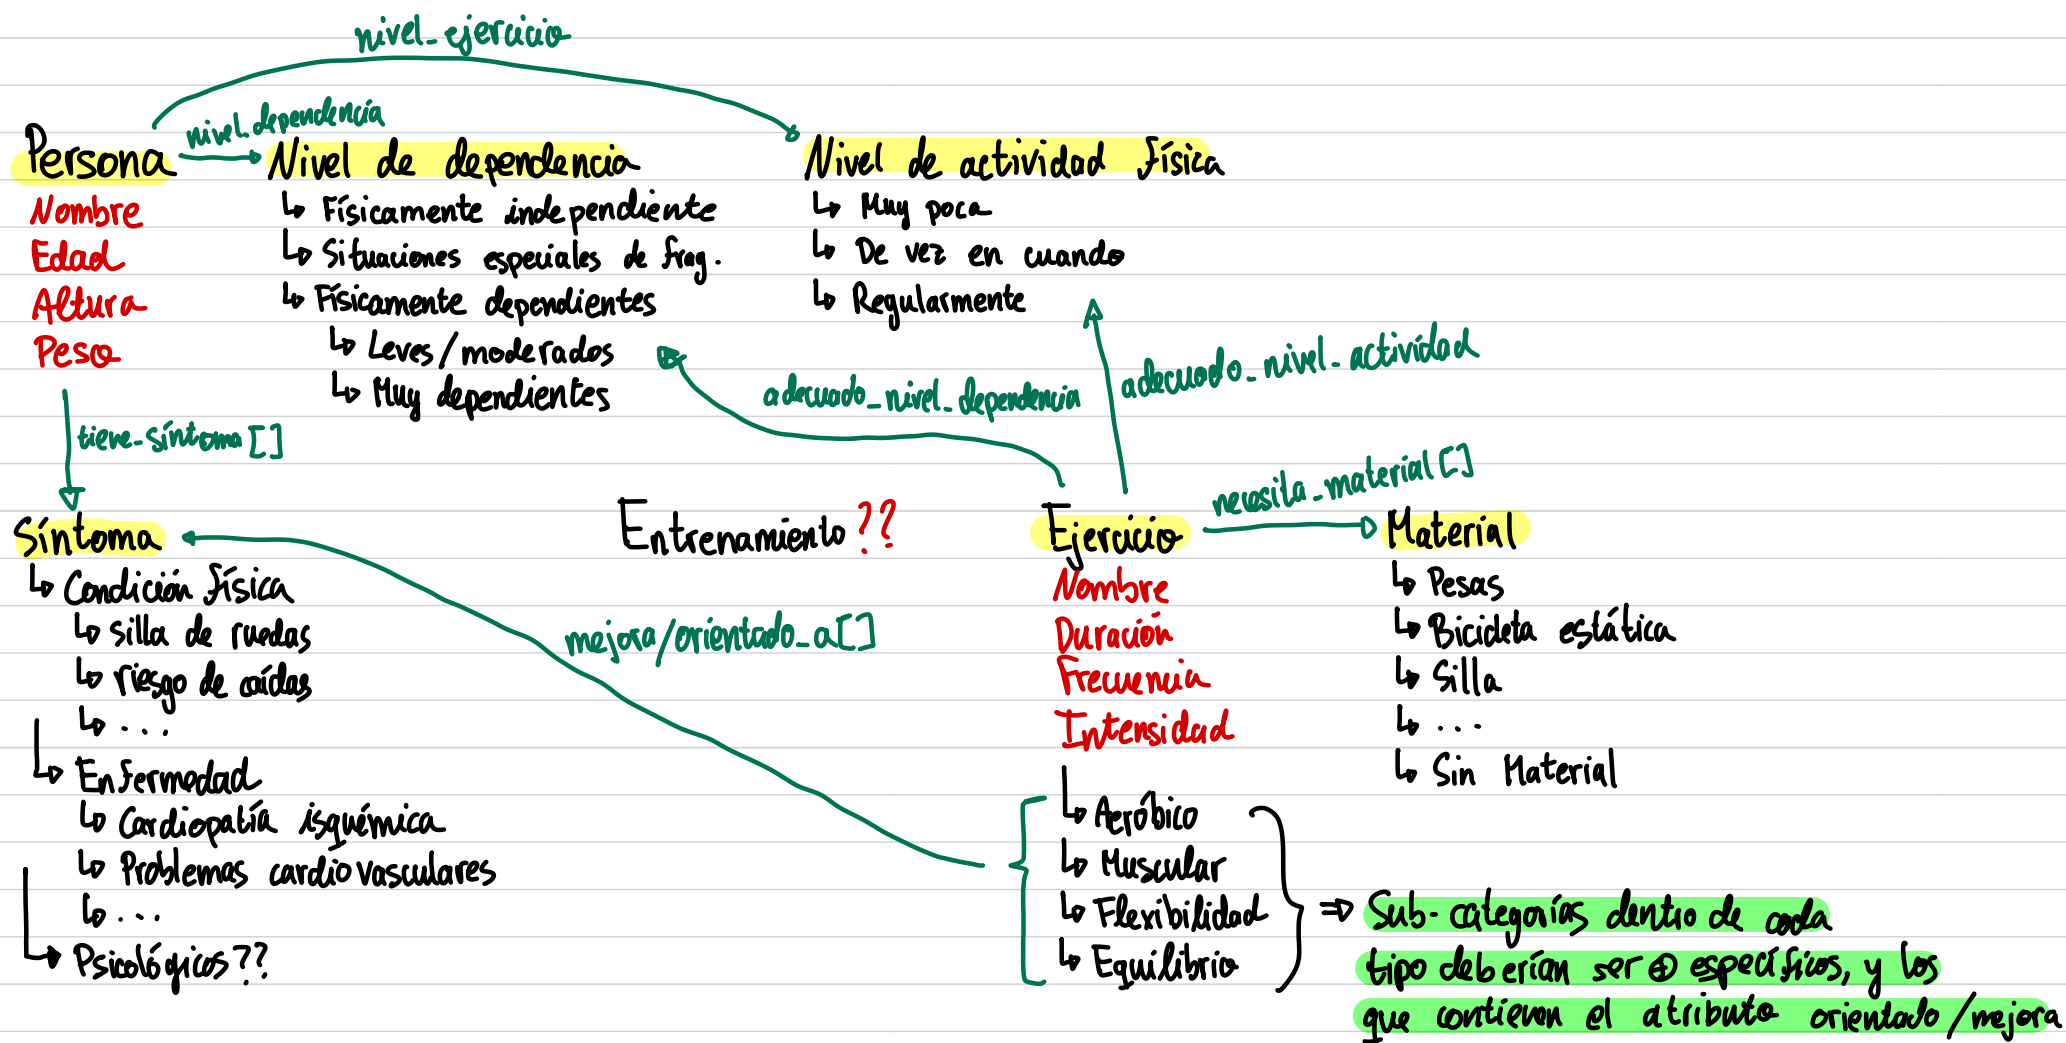 nivel_ejercicio
nivel_dependencia
Persona
Nombre
Edad
Altura
Peso
tiene_síntoma[]
Nivel de dependencia
↳ Físicamente independiente
↳ Situaciones especiales de frag.
↳ Físicamente dependientes
↳ Leves/moderados
↳ Muy dependientes
Nivel de actividad física
↳ Muy poca
↳ De vez en cuando
↳ Regularmente
adecuado_nivel_dependencia
adecuado_nivel_actividad
necesita_material[]
Síntoma
↳ Condición física
↳ silla de ruedas
↳ riesgo de caídas
↳ ...
↳ Enfermedad
↳ Cardiopatía isquémica
↳ Problemas cardiovasculares
↳ ...
↳ Psicológicos??
mejora/orientado_a[]
Entrenamiento??
Ejercicio
Nombre
Duración
Frecuencia
Intensidad
↳ Aeróbico
↳ Muscular
↳ Flexibilidad
↳ Equilibrio
Material
↳ Pesas
↳ Bicicleta estática
↳ Silla
↳ ...
↳ Sin Material
⇒ Sub-categorías dentro de cada
tipo deberían ser ⊕ específicos, y los
que contienen el atributo orientado/mejora